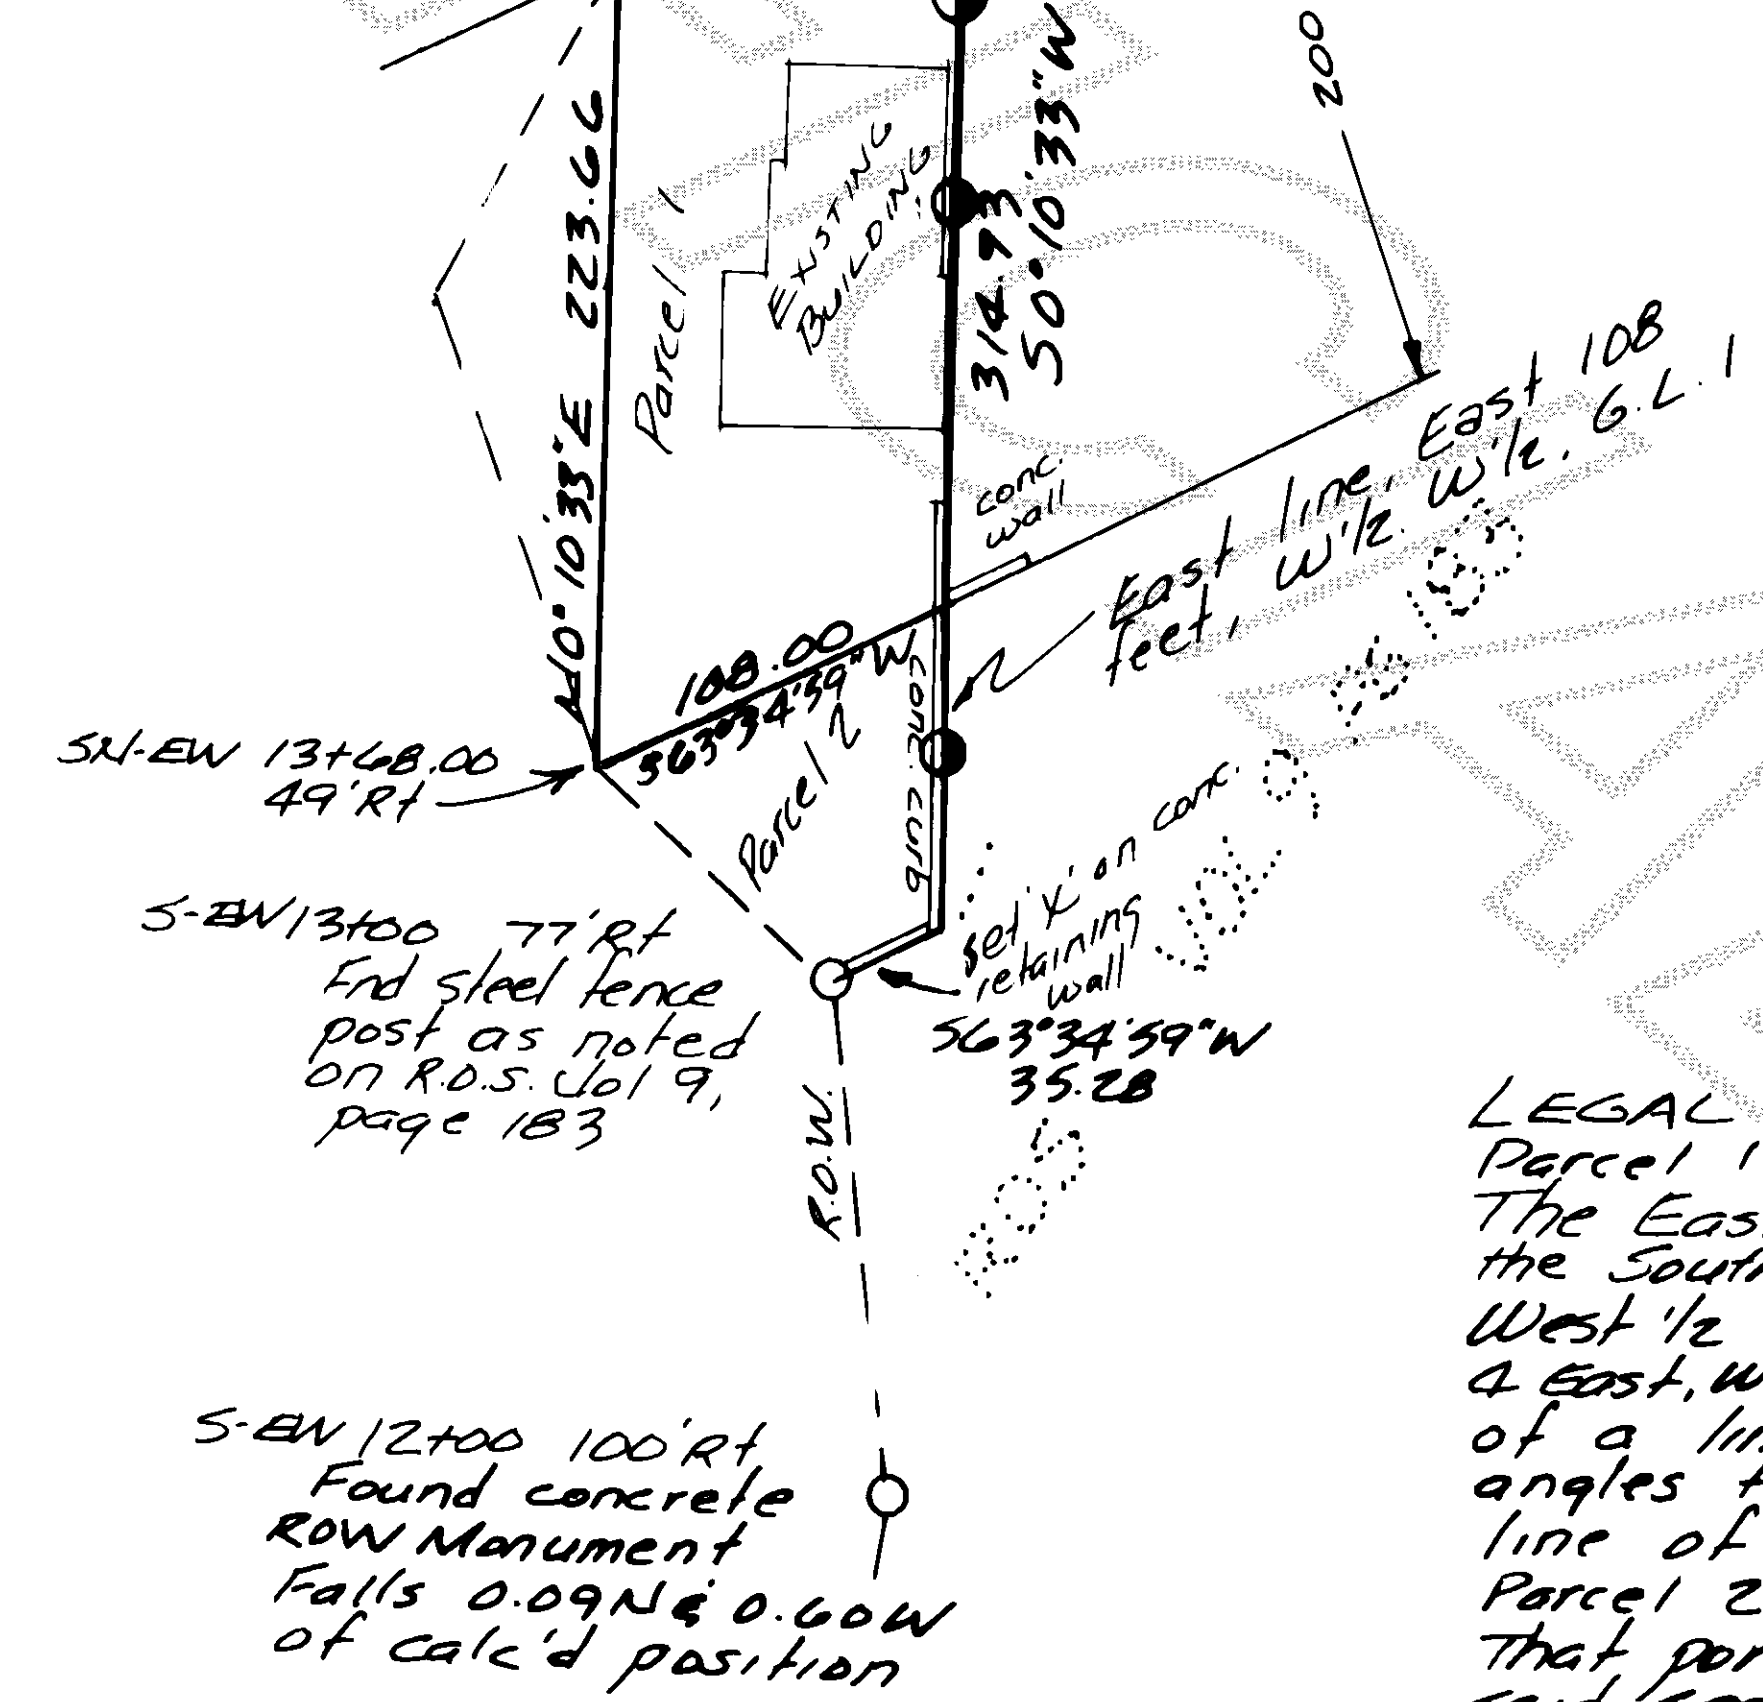 200
N0°10'33"E 223.66
Parcel 1
EXISTING
BUILDING
314.93
S0°10'33"W
East line, East 108
feet, W'/2. W'/2. G.L. 1
conc.
wall
108.00
S63°34'59"W
conc. curb
Parcel 2
SN-EW 13+68.00
49' Rt
S-EW 13+00 77' Rt
Fnd steel fence
post as noted
on R.O.S. Vol 9,
page 183
set 'X' on conc.
retaining
wall
S63°34'59"W
35.28
R.O.W.
S-EW 12+00 100' Rt
Found concrete
ROW Monument
Falls 0.09N & 0.60W
of calc'd position
LEGAL
Parcel 1
The Eas
the South
West 1/2
4 East, W
of a lin
angles t
line of
Parcel 2
That por